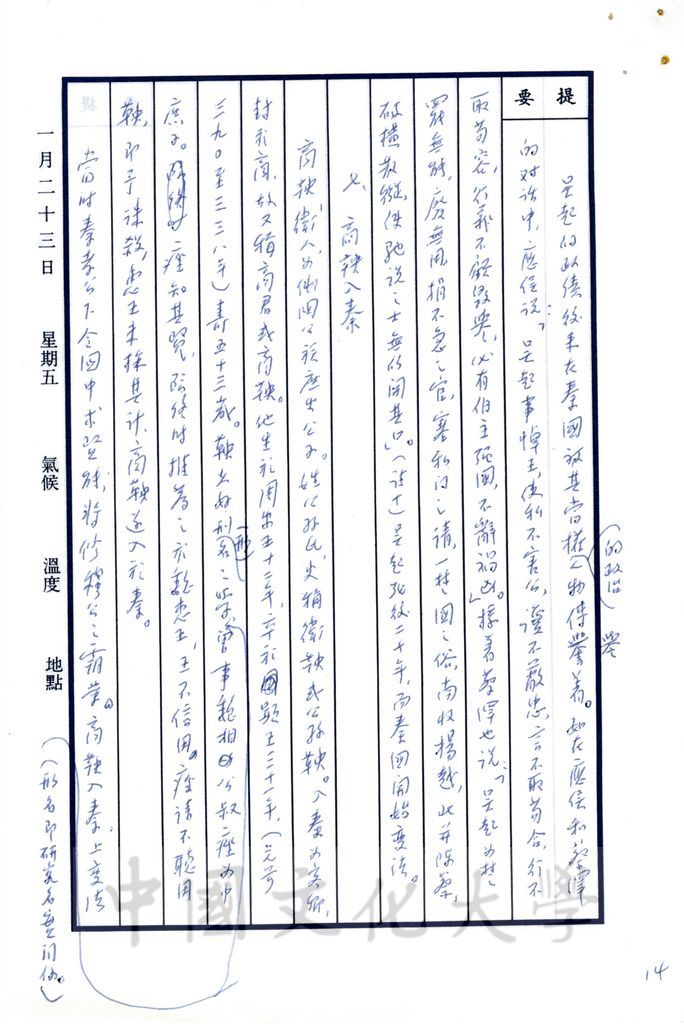 提要
吳起的政績後來在秦國被其當權人物傳譽着。如在應侯和蔡澤
(的政治
譽
的対話中，應侯說：「吳起事悼王，使私不害公，讒不蔽忠，言不取苟合，行不
取苟容，行義不顧毀譽，必有伯主强國，不辭禍凶。」接着蔡澤也說：「吳起為楚
罷無能，廢無用，損不急之官，塞私门之請，一楚國之俗，南收揚越，北并陳蔡，
破橫散縱，使馳說之士無所開其口。」（註十）吳起死後二十年，而秦國開始變法。
七、商鞅入秦
商鞅，衛人，為衛國公族庶出公子。姓公孫氏，史稱衛鞅或公孫鞅。入秦為客卿，
封於商，故又稱商君或商鞅。他生於周安王十二年，卒於顯王三十一年，（元前
三九〇至三三八年）壽五十三歲。鞅少好刑名之學，曾事魏相公叔痤為中
(形)
庶子。痤知其賢，臨終時推薦之於魏惠王，王不信用。痤請不聽用
鞅，即予誅殺，惠王未採其計，商鞅遂入於秦。
當時秦孝公下令國中求賢能，將修穆公之霸業。商鞅入秦，上變法
(形名即研究名實间係。)
一月二十三日 星期五 氣候 溫度 地點
14
中國文化大學